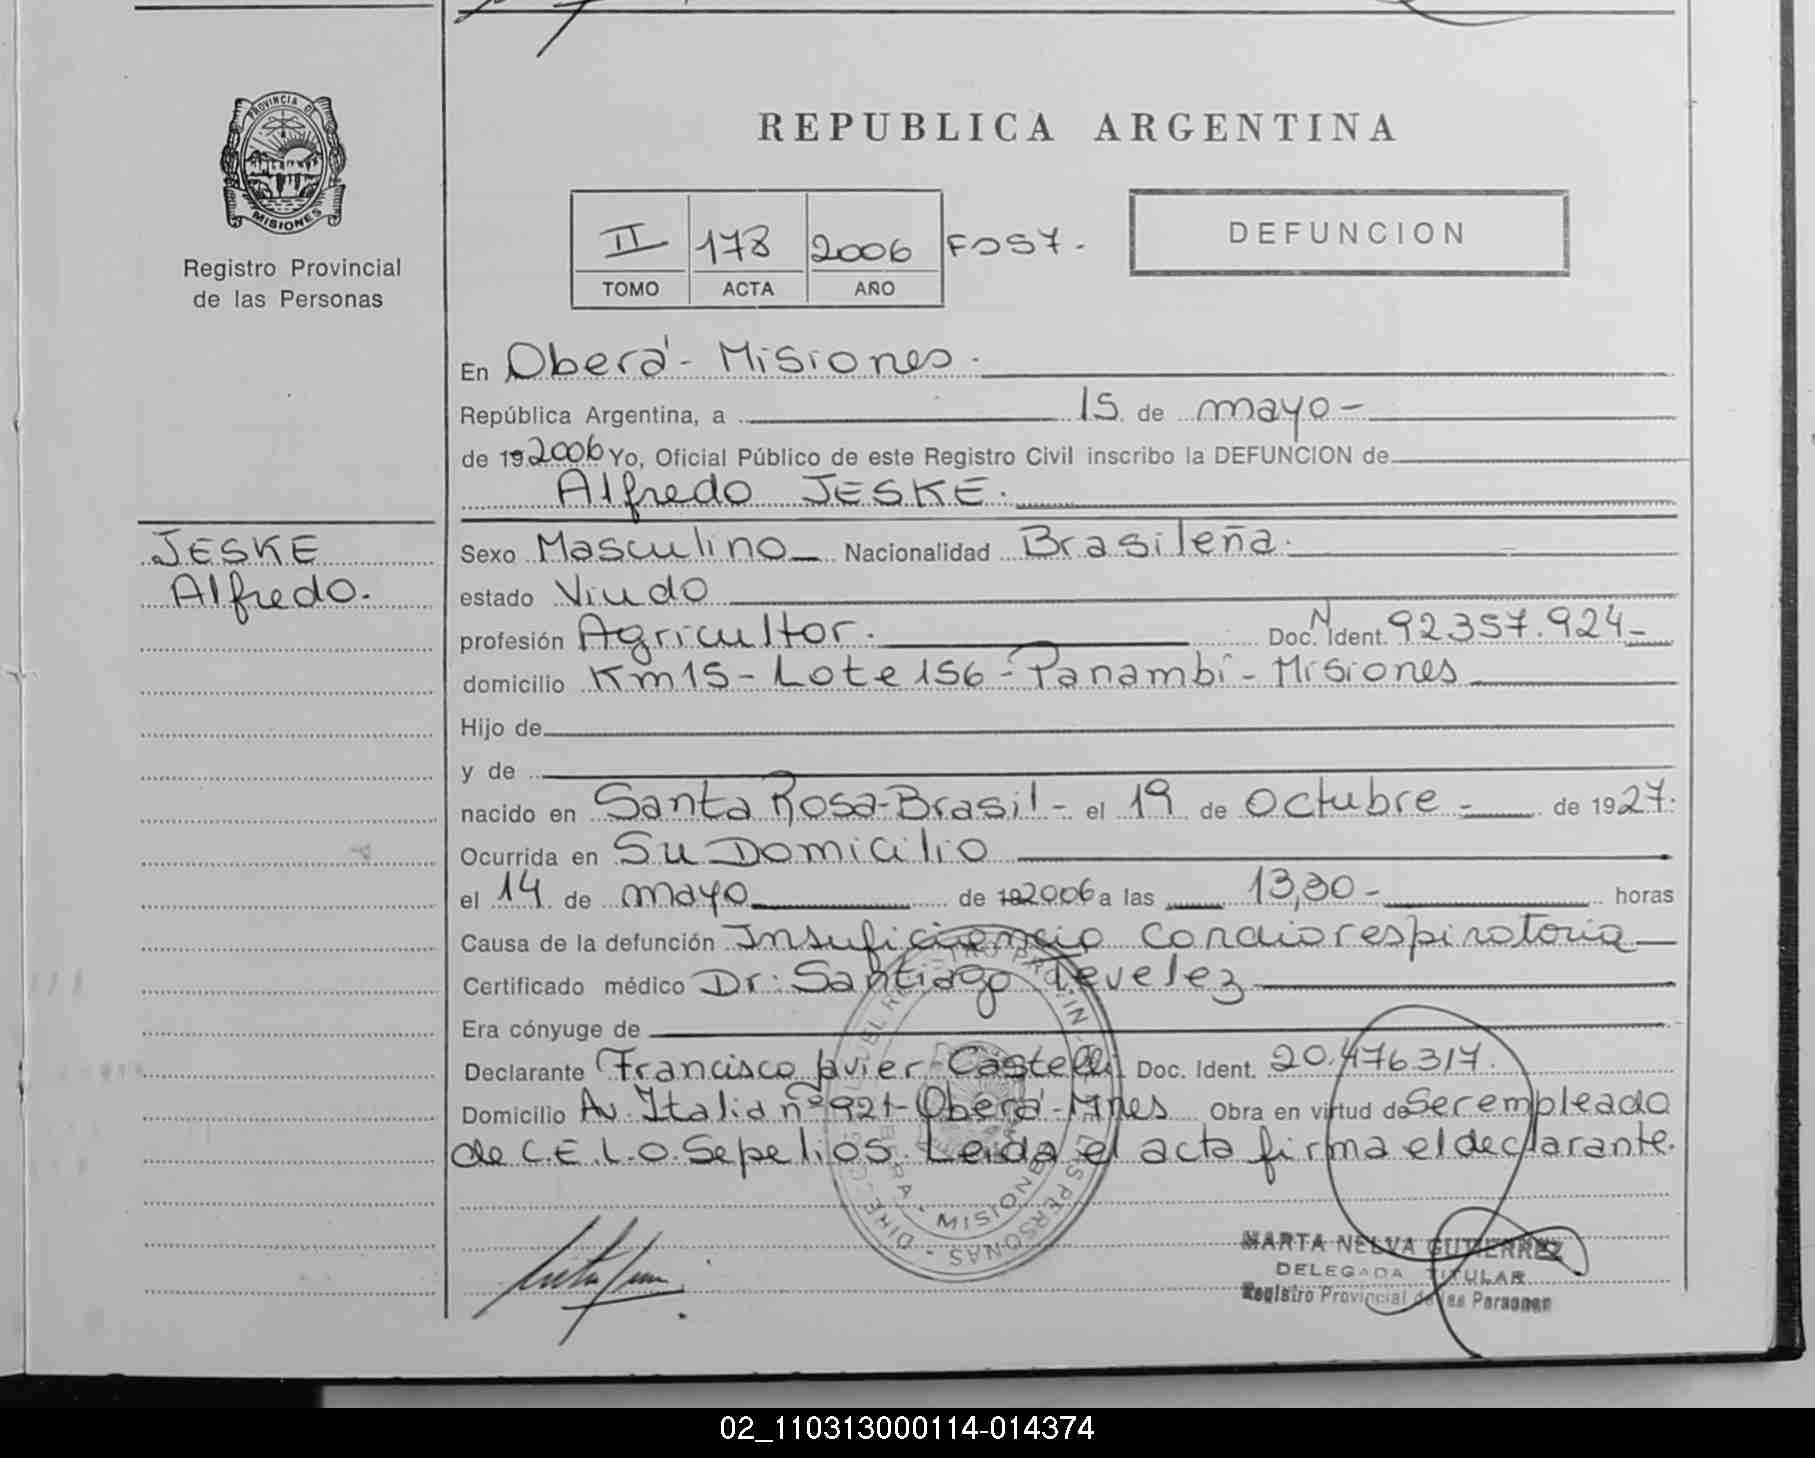 PROVINCIA DE
MISIONES
Registro Provincial
de las Personas
REPUBLICA ARGENTINA
II 178 2006 Fº 57.
TOMO ACTA AÑO
DEFUNCION
En Oberá - Misiones.
República Argentina, a 15 de mayo -
de 19 2006 Yo, Oficial Público de este Registro Civil inscribo la DEFUNCION de
Alfredo JESKE.
JESKE
Alfredo.
Sexo Masculino Nacionalidad Brasileña.
estado Viudo
profesión Agricultor. Doc. N Ident. 92357.924-
domicilio Km 15 - Lote 156 - Panambí - Misiones
Hijo de
y de
nacido en Santa Rosa - Brasil - el 19 de Octubre - de 1927.
Ocurrida en Su Domicilio
el 14 de mayo de 19 2006 a las 13,30 - horas
Causa de la defunción Insuficiencia Cardiorespiratoria
Certificado médico Dr: Santiago Tevelez
Era cónyuge de
Declarante Francisco Javier Castelli Doc. Ident. 20.476.317.
Domicilio Av. Italia nº 921 - Oberá - Mnes Obra en virtud de Ser empleado
de C.E.L.O. Sepelios. Leida el acta firma el declarante.
MISIONES
MARTA NELVA GUTIERREZ
DELEGADA TITULAR
Registro Provincial de las Personas
02_110313000114-014374